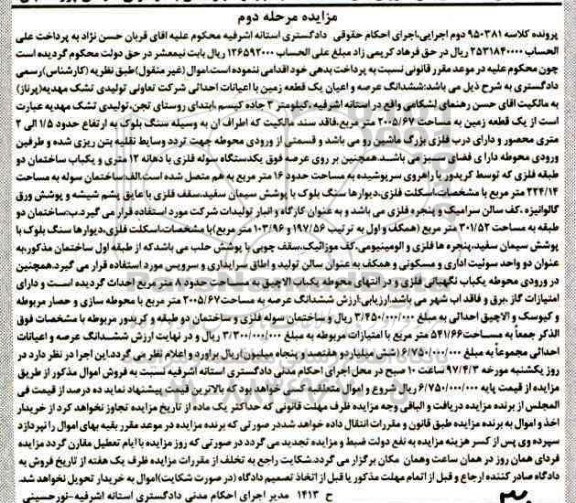 مزایده مرحله دوم
پرونده کلاسه ۹۵۰۳۸۱ دوم اجرایی،اجرای احکام حقوقی دادگستری استانه اشرفیه محکوم علیه اقای قربان حسن نژاد به پرداخت علی
الحساب ۲۵۳۱۸۴۰۰۰۰ ریال در حق فرهاد کریمی زاد مبلغ علی الحساب ۱۲۶۵۹۲۰۰۰ ریال بابت نیمعشر در حق دولت محکوم گردیده است
چون محکوم علیه در موعد مقرر قانونی نسبت به پرداخت بدهی خود اقدامی ننموده است.اموال (غیر منقول)طبق نظریه (کارشناس)رسمی
دادگستری به شرح ذیل می باشد:ششدانگ عرصه و اعیان یک قطعه زمین با اعیانات احداثی شرکت تعاونی تولیدی تشک مهدیه(پرناز)
به مالکیت اقای حسن رهنمای لشکامی واقع در استانه اشرفیه ،کیلومتر ۲ جاده کیسم ،ابتدای روستای تجن،تولیدی تشک مهدیه عبارت
است از یک قطعه زمین به مساحت ۲۰۰۵/۶۷ متر مربع،فاقد سند مالکیت که اطراف ان به وسیله سنگ بلوک به ارتفاع حدود ۱/۵ الی ۲
متری محصور و دارای درب فلزی بزرگ ماشین رو می باشد و قسمتی از ورودی محوطه جهت تردد وسایط نقلیه بتن ریزی شده و طرفین
ورودی محوطه دارا ی فضای سبز می باشد.همچنین بر روی عرصه فوق یکدستگاه سوله فلزی با دهانه ۱۲ متری و یکباب ساختمان دو
طبقه فلزی که توسط کریدور یا راهروی سرپوشیده به مساحت حدود ۱۶ متر مربع به هم متصل شده است.الف:ساختمان سوله به مساحت
۲۲۴/۱۴ متر مربع با مشخصات،اسکلت فلزی،دیوارها سنگ بلوک با پوشش سیمان سفید،سقف فلزی با عایق پشم شیشه و پوشش ورق
گالوانیزه ،کف سالن سرامیک و پنجره فلزی می باشد و به عنوان کارگاه و انبار تولیدات شرکت مورد استفاده قرار می گیرد.ب:ساختمان دو
طبقه به مساحت ۳۰۱/۵۲ متر مربع (همکف و اول به ترتیب ۱۹۷/۵۶ و ۱۰۳/۹۶ متر مربع)با مشخصات،اسکلت فلزی،دیوارها سنگ بلوک با
پوشش سیمان سفید،پنجره ها فلزی و الومینیومی،کف موزائیک،سقف چوبی با پوشش حلب می باشد که از طبقه اول ساختمان مذکور،به
عنوان دو واحد سوئیت اداری و مسکونی و همکف به عنوان سالن تولید و اطاق سرایداری و سرویس مورد استفاده قرار می گیرد.همچنین
در ورودی محوطه یکباب نگهبانی فلزی و در انتهای محوطه یکباب الاچیق به مساحت حدود ۸ متر مربع احداث گردیده است و دارای
امتیازات گاز ،برق و فاقد اب شهر می باشد.ارزیابی:ارزش ششدانگ عرصه به مساحت ۲۰۰۵/۶۷ متر مربع با محوطه سازی و حصار مربوطه
و کیوسک و الاچیق احداثی به مبلغ ۳/۴۵۰/۰۰۰/۰۰۰ ریال و ساختمان سوله فلزی و ساختمان دو طبقه و کریدور مربوطه با مشخصات فوق
الذکر جمعاً به مساحت ۵۴۱/۶۶ متر مربع با امتیازات مربوطه به مبلغ ۳/۳۰۰/۰۰۰/۰۰۰ ریال و در نهایت ارزش ششدانگ عرصه و اعیانات
احداثی مجموعاً به مبلغ ۶/۷۵۰/۰۰۰/۰۰۰(شش میلیارد و هفتصد و پنجاه میلیون)ریال براورد و اعلام نظر می گردد.این اجرا در نظر دارد در
روز یکشنبه مورخه ۹۷/۴/۳ ساعت ۱۰ صبح در محل اجرای احکام مدنی دادگستری استانه اشرفیه نسبت به فروش اموال مذکور از طریق
مزایده از قیمت پایه ۶/۷۵۰/۰۰۰/۰۰۰ ریال شروع و اموال متعلق به کسی خواهد بود که بالاترین قیمت پیشنهاد نماید ده درصد از قیمت فی
المجلس از برنده مزایده دریافت و الباقی وجه مزایده ظرف مهلت قانونی که حداکثر یک ماده از تاریخ مزایده تجاوز نخواهد کرد از خریدار
اخذ و اموال به برنده مزایده طبق قانون و مقررات انتقال داده خواهد شد،در صورتی که برنده مزایده در موعد مقرر بقیه بهای اموال را نپردازد
سپرده وی پس از کسر هزینه مزایده به نفع دولت ضبط و مزایده تجدید می گردد در صورتی که روز مزایده با ایام تعطیل مقارن گردد مزایده
فردای همان روز در همان ساعت وهمان مکان برگزار می گردد.شکایت راجع به تخلف از مقررات مزایده ظرف یک هفته از تاریخ فروش به
دادگاه صادر کننده ارجاع و قبل از اتمام مهلت مذکور یا قبل از اتخاذ تصمیم دادگاه (در صورت شکایت)اموال به خریدار تحویل نخواهد شد.
ح ۱۴۱۳ مدیر اجرای احکام مدنی دادگستری استانه اشرفیه-نورحسینی